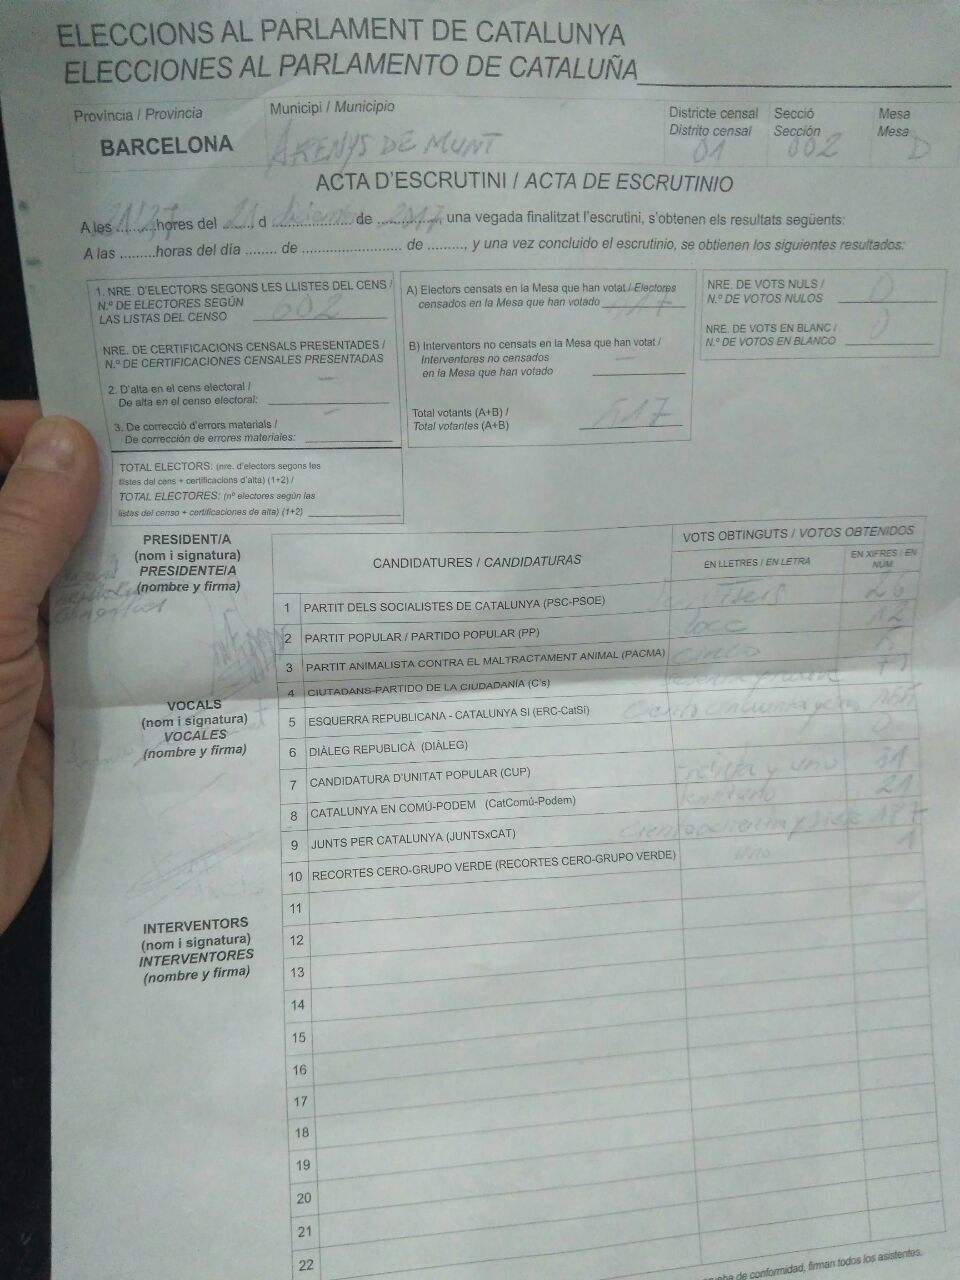 ELECCIONS AL PARLAMENT DE CATALUNYA
ELECCIONES AL PARLAMENTO DE CATALUÑA
Província / Provincia
BARCELONA
Municipi / Municipio
ARENYS DE MUNT
Districte censal
Distrito censal
01
Secció
Sección
002
Mesa
Mesa
D
ACTA D'ESCRUTINI / ACTA DE ESCRUTINIO
A les ......... hores del ....... d .................... de ................, una vegada finalitzat l'escrutini, s'obtenen els resultats següents:
A las .........horas del día ........ de ......................... de ........., y una vez concluido el escrutinio, se obtienen los siguientes resultados:
1. NRE. D'ELECTORS SEGONS LES LLISTES DEL CENS /
N.º DE ELECTORES SEGÚN
LAS LISTAS DEL CENSO 602
NRE. DE CERTIFICACIONS CENSALS PRESENTADES /
N.º DE CERTIFICACIONES CENSALES PRESENTADAS
2. D'alta en el cens electoral /
De alta en el censo electoral: –
3. De correcció d'errors materials /
De corrección de errores materiales: –
TOTAL ELECTORS: (nre. d'electors segons les
llistes del cens + certificacions d'alta) (1+2) /
TOTAL ELECTORES: (nº electores según las
listas del censo + certificaciones de alta) (1+2)
A) Electors censats en la Mesa que han votat / Electores
censados en la Mesa que han votado 517
B) Interventors no censats en la Mesa que han votat /
Interventores no censados
en la Mesa que han votado –
Total votants (A+B) /
Total votantes (A+B) 517
NRE. DE VOTS NULS /
N.º DE VOTOS NULOS 0
NRE. DE VOTS EN BLANC /
N.º DE VOTOS EN BLANCO 0
PRESIDENT/A
(nom i signatura)
PRESIDENTE/A
(nombre y firma)
VOCALS
(nom i signatura)
VOCALES
(nombre y firma)
INTERVENTORS
(nom i signatura)
INTERVENTORES
(nombre y firma)
CANDIDATURES / CANDIDATURAS
VOTS OBTINGUTS / VOTOS OBTENIDOS
EN LLETRES / EN LETRA
EN XIFRES / EN
NÚM.
1 PARTIT DELS SOCIALISTES DE CATALUNYA (PSC-PSOE) 26
2 PARTIT POPULAR / PARTIDO POPULAR (PP) doce 12
3 PARTIT ANIMALISTA CONTRA EL MALTRACTAMENT ANIMAL (PACMA) cinco 5
4 CIUTADANS-PARTIDO DE LA CIUDADANÍA (C's)
5 ESQUERRA REPUBLICANA - CATALUNYA SÍ (ERC-CatSí)
6 DIÀLEG REPUBLICÀ (DIÀLEG) 0
7 CANDIDATURA D'UNITAT POPULAR (CUP) treinta y uno 31
8 CATALUNYA EN COMÚ-PODEM (CatComú-Podem) 21
9 JUNTS PER CATALUNYA (JUNTSxCAT) ciento ochenta y siete 187
10 RECORTES CERO-GRUPO VERDE (RECORTES CERO-GRUPO VERDE) uno 1
11
12
13
14
15
16
17
18
19
20
21
22
de conformidad, firman todos los asistentes.